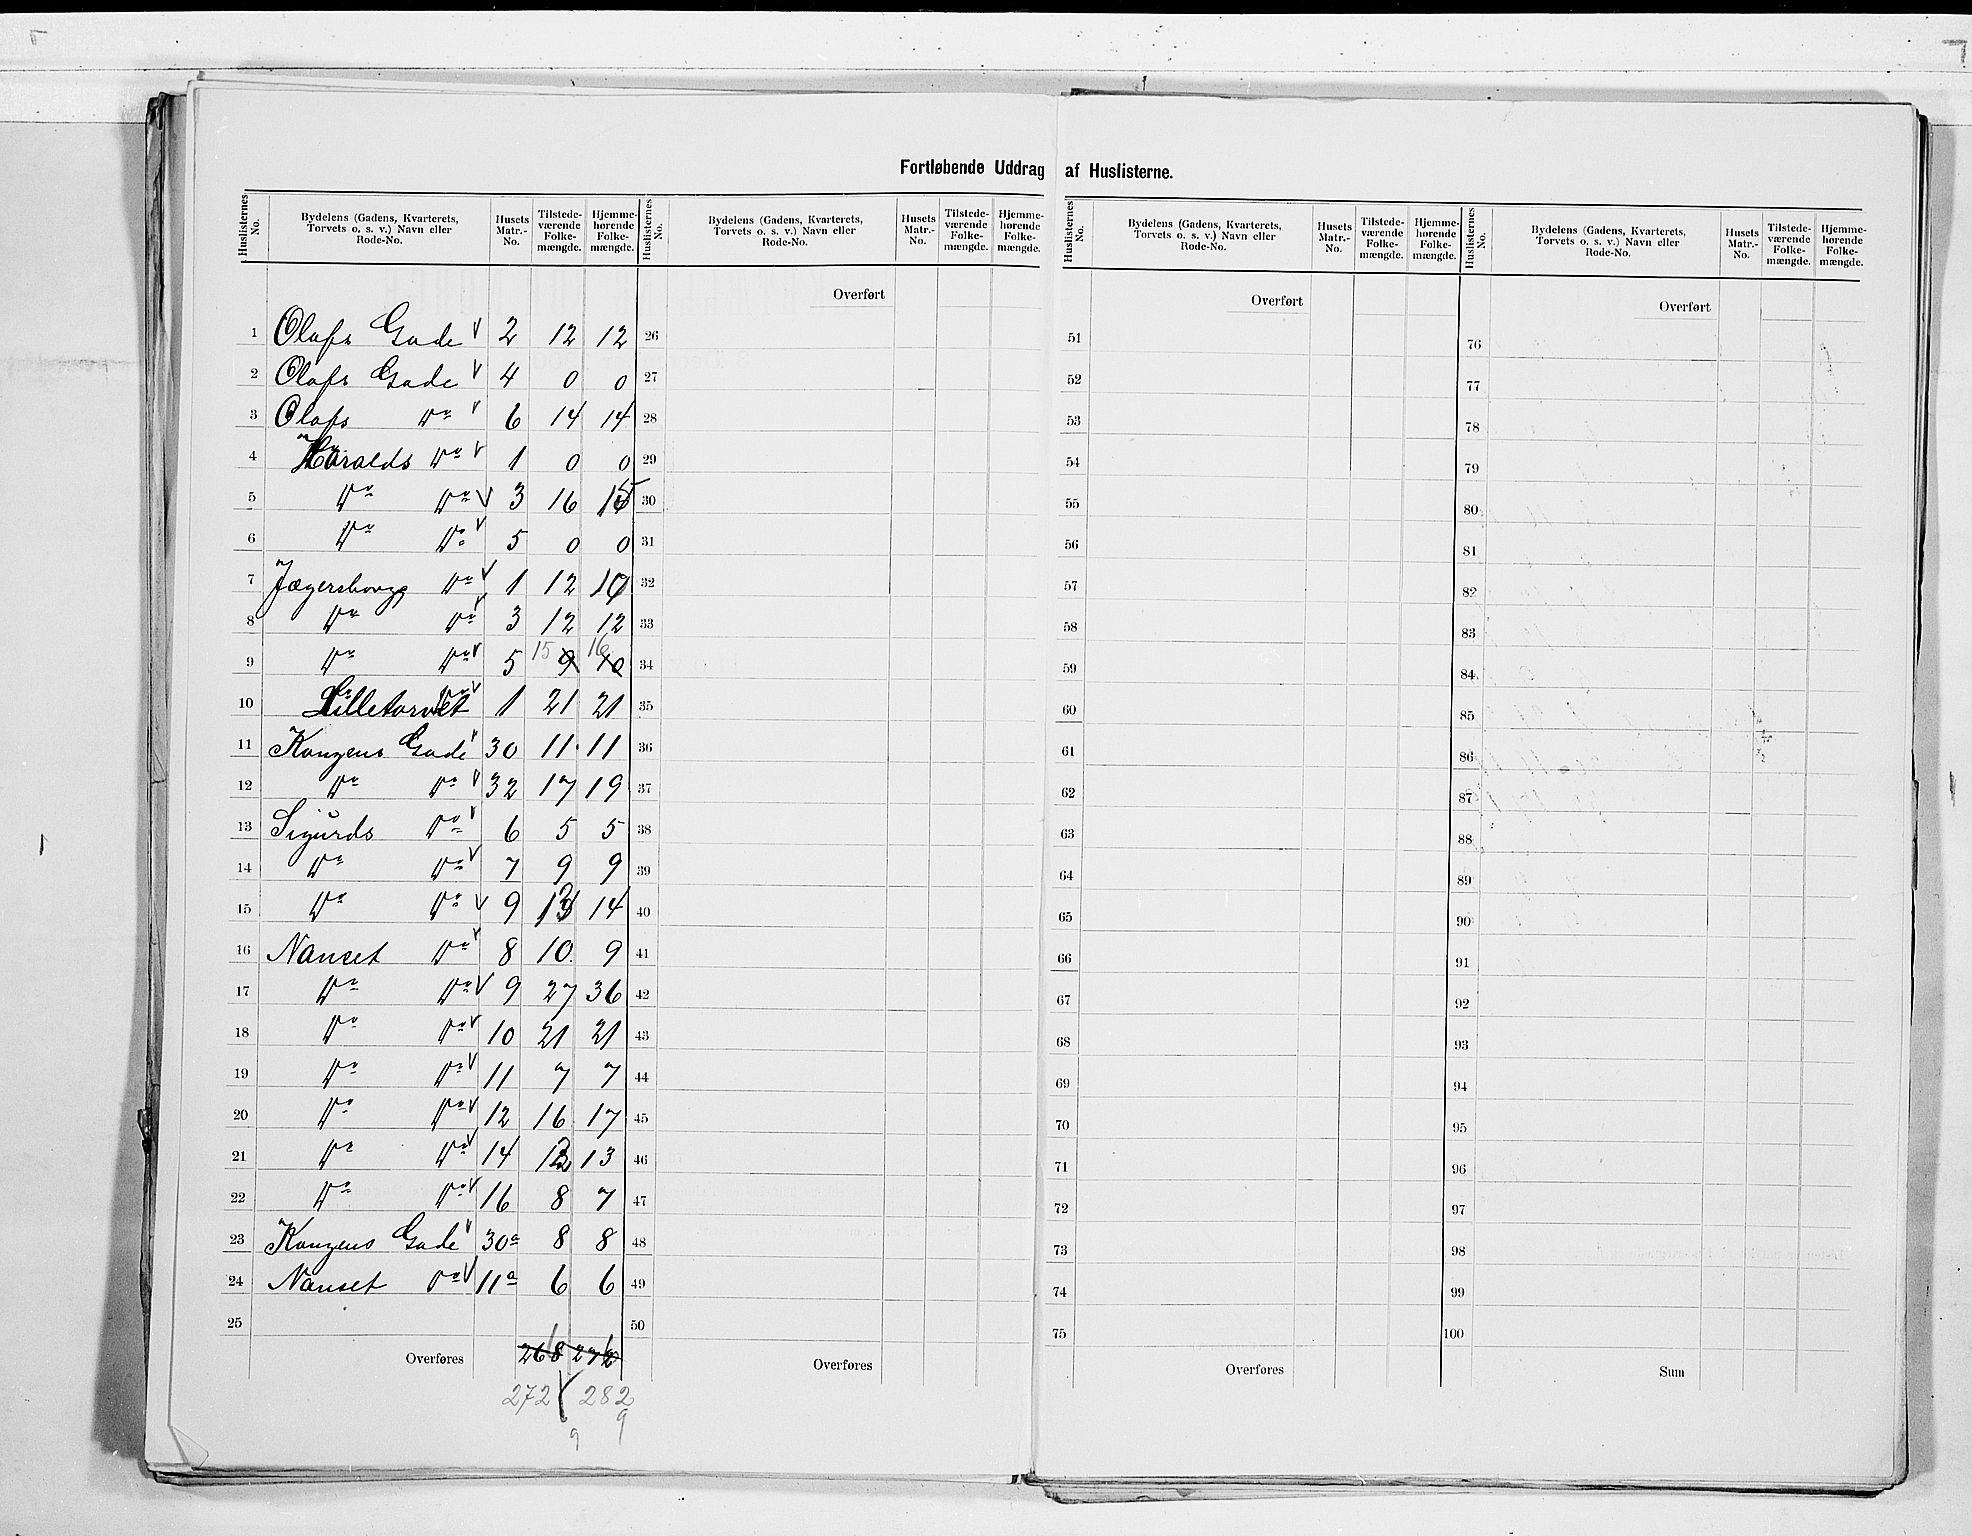 Fortløbende Uddrag af Huslisterne.
Huslisternes No. Bydelens (Gadens, Kvarterets, Torvets o. s. v.) Navn eller Rode-No. Husets Matr.-No. Tilstede-værende Folke-mængde. Hjemme-hørende Folke-mængde. Huslisternes No. Bydelens (Gadens, Kvarterets, Torvets o. s. v.) Navn eller Rode-No. Husets Matr.-No. Tilstede-værende Folke-mængde. Hjemme-hørende Folke-mængde. Huslisternes No. Bydelens (Gadens, Kvarterets, Torvets o. s. v.) Navn eller Rode-No. Husets Matr.-No. Tilstede-værende Folke-mængde. Hjemme-hørende Folke-mængde. Huslisternes No. Bydelens (Gadens, Kvarterets, Torvets o. s. v.) Navn eller Rode-No. Husets Matr.-No. Tilstede-værende Folke-mængde. Hjemme-hørende Folke-mængde.
Overført Overført Overført
1 Olafs Gade V 2 12 12 26 51 76
2 Olafs Gade V 4 0 0 27 52 77
3 Olafs Do V 6 14 14 28 53 78
4 Haralds Do V 1 0 0 29 54 79
5 Do Do V 3 16 15 30 55 80
6 Do Do V 5 0 0 31 56 81
7 Jægersborgs Do V 1 12 10 32 57 82
8 Do Do V 3 12 12 33 58 83
9 Do Do V 5 15 9 16 10 34 59 84
10 Lilletorvet V 1 21 21 35 60 85
11 Kongens Gade V 30 11 11 36 61 86
12 Do Do V 32 17 19 37 62 87
13 Sigurds Do V 6 5 5 38 63 88
14 Do Do V 7 9 9 39 64 89
15 Do Do V 9 13 14 40 65 90
16 Nanset Do V 8 10 9 41 66 91
17 Do Do V 9 27 36 42 67 92
18 Do Do V 10 21 21 43 68 93
19 Do Do V 11 7 7 44 69 94
20 Do Do V 12 16 17 45 70 95
21 Do Do V 14 13 46 71 96
22 Do Do V 16 8 7 47 72 97
23 Kongens Gade V 30a 8 8 48 73 98
24 Nanset Do V 11a 6 6 49 74 99
25 50 75 100
Overføres 268 Overføres Overføres Sum
272 282
9 9